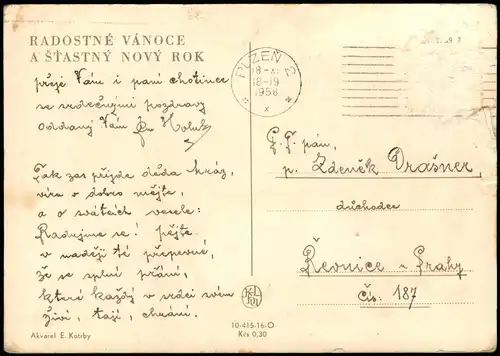 RADOSTNÉ VÁNOCE
A ŠŤASTNÝ NOVÝ ROK
přeje Vám i paní chotince
se srdečnými pozdravy
Oddaný Vám
Tak zas přijde děda Mráz,
víru v dobro mějte,
a o svátcích vesele:
Radujme se! pějte
v naději té přepevné,
že se splní přání,
které každý v srdci svém
živí, tají, chrání.
Akvarel E. Kotrby
PLZEŇ 2
18-19
1958
x
p. Zdeněk Drašner,
důchodce
Řevnice u Prahy
čís: 187
10-415-16-O
Kčs 0,30